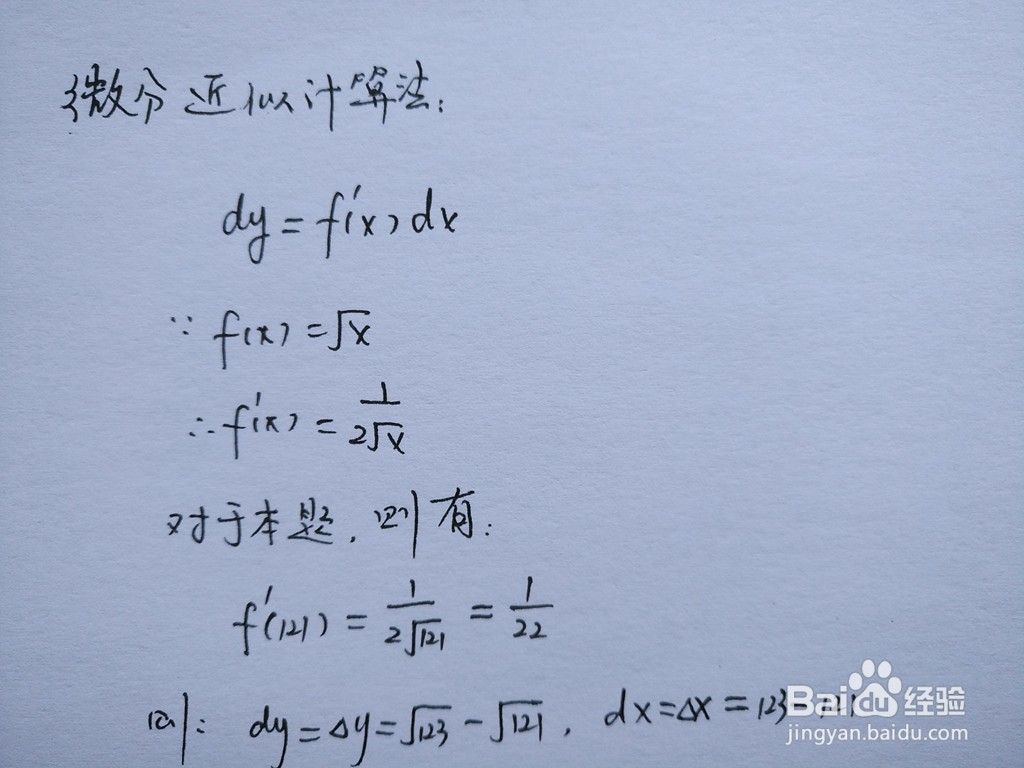 微分近似计算法:
dy = f'(x) dx
∵ f(x) = √x
∴ f'(x) = 1/(2√x)
对于本题,则有:
f'(121) = 1/(2√121) = 1/22
则: dy = Δy = √123 - √121, dx = Δx = 123 - 121
Baidu 经验
jingyan.baidu.com